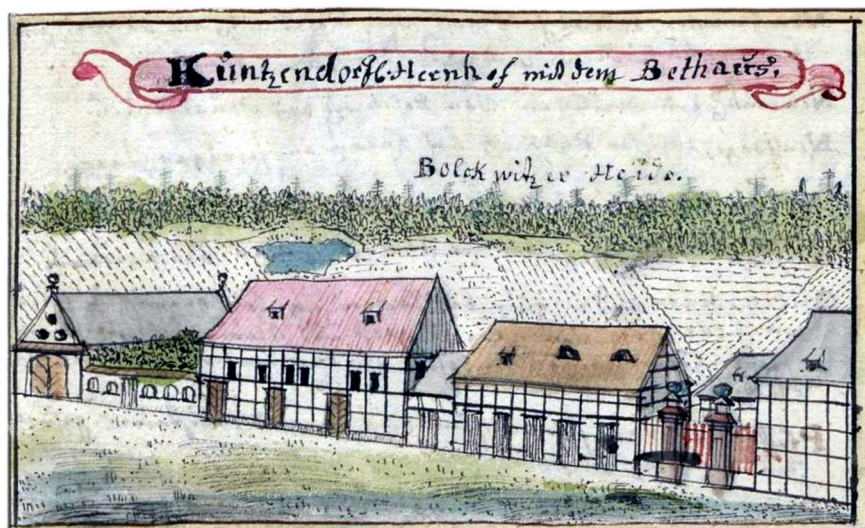 Küntzendorfl. Herrnhof mit dem Bethaus.
Bolckwitzer Heide.